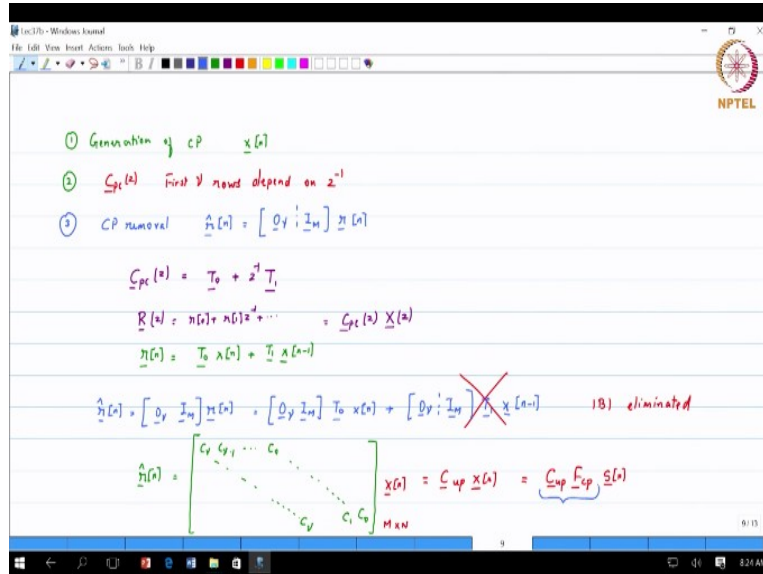 Lec37b - Windows Journal
File Edit View Insert Actions Tools Help
NPTEL
① Generation of CP x[n]
② C_pc(z) First ν rows depend on z^-1
③ CP removal r̂[n] = [ 0_ν ⋮ I_M ] r[n]
C_pc(z) = T_0 + z^-1 T_1
R(z) = r[0] + r[1]z^-1 + ⋯ = C_pc(z) X(z)
r[n] = T_0 x[n] + T_1 x[n-1]
r̂[n] = [ 0_ν I_M ] r[n] = [ 0_ν I_M ] T_0 x[n] + [ 0_ν ⋮ I_M ] T_1 x[n-1] IBI eliminated
r̂[n] = [ C_ν C_ν-1 ⋯ C_0 ⋱ C_ν C_1 C_0 ] M×N x[n] = C_up x[n] = C_up F_cp s[n]
9/13
9
8:24 AM